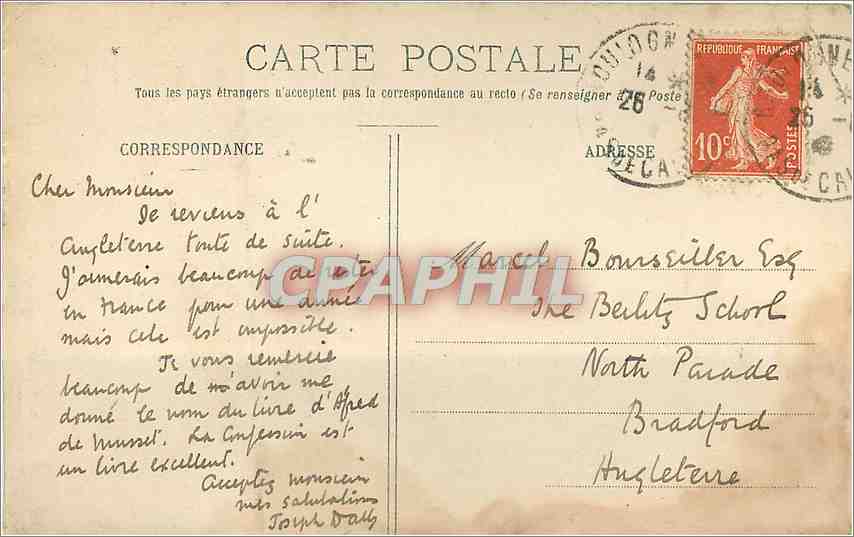 CARTE POSTALE
Tous les pays étrangers n'acceptent pas la correspondance au recto (Se renseigner à la Poste
CORRESPONDANCE
ADRESSE
REPUBLIQUE FRANÇAISE
10c
POSTES
14
26
14
26
Cher Monsieur
Je reviens à l'
Angleterre toute de suite.
J'aimerais beaucoup de rester
en France pour une année
mais cela est impossible.
Je vous remercie
beaucoup de m'avoir me
donné le nom du livre d'Alfred
de Musset. La Confession est
un livre excellent.
Acceptez monsieur
mes salutations
Joseph
Marcel Bourseiller Esq
The Berlitz School
North Parade
Bradford
Angleterre
CPAPHIL